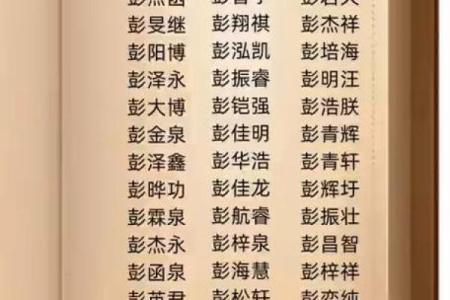 彭旻继 彭翔祺 彭杰祥
彭阳博 彭泓凯 彭培海
彭泽永 彭振睿 彭明汪
彭大博 彭铠强 彭浩朕
彭金泉 彭佳明 彭青辉
彭泽鑫 彭华浩 彭青轩
彭晔功 彭佳龙 彭辉圩
彭霖泉 彭航睿 彭振壮
彭杰永 彭梓泉 彭昌智
彭函泉 彭海慧 彭梓祥
彭英君 彭松轩 彭奕纯